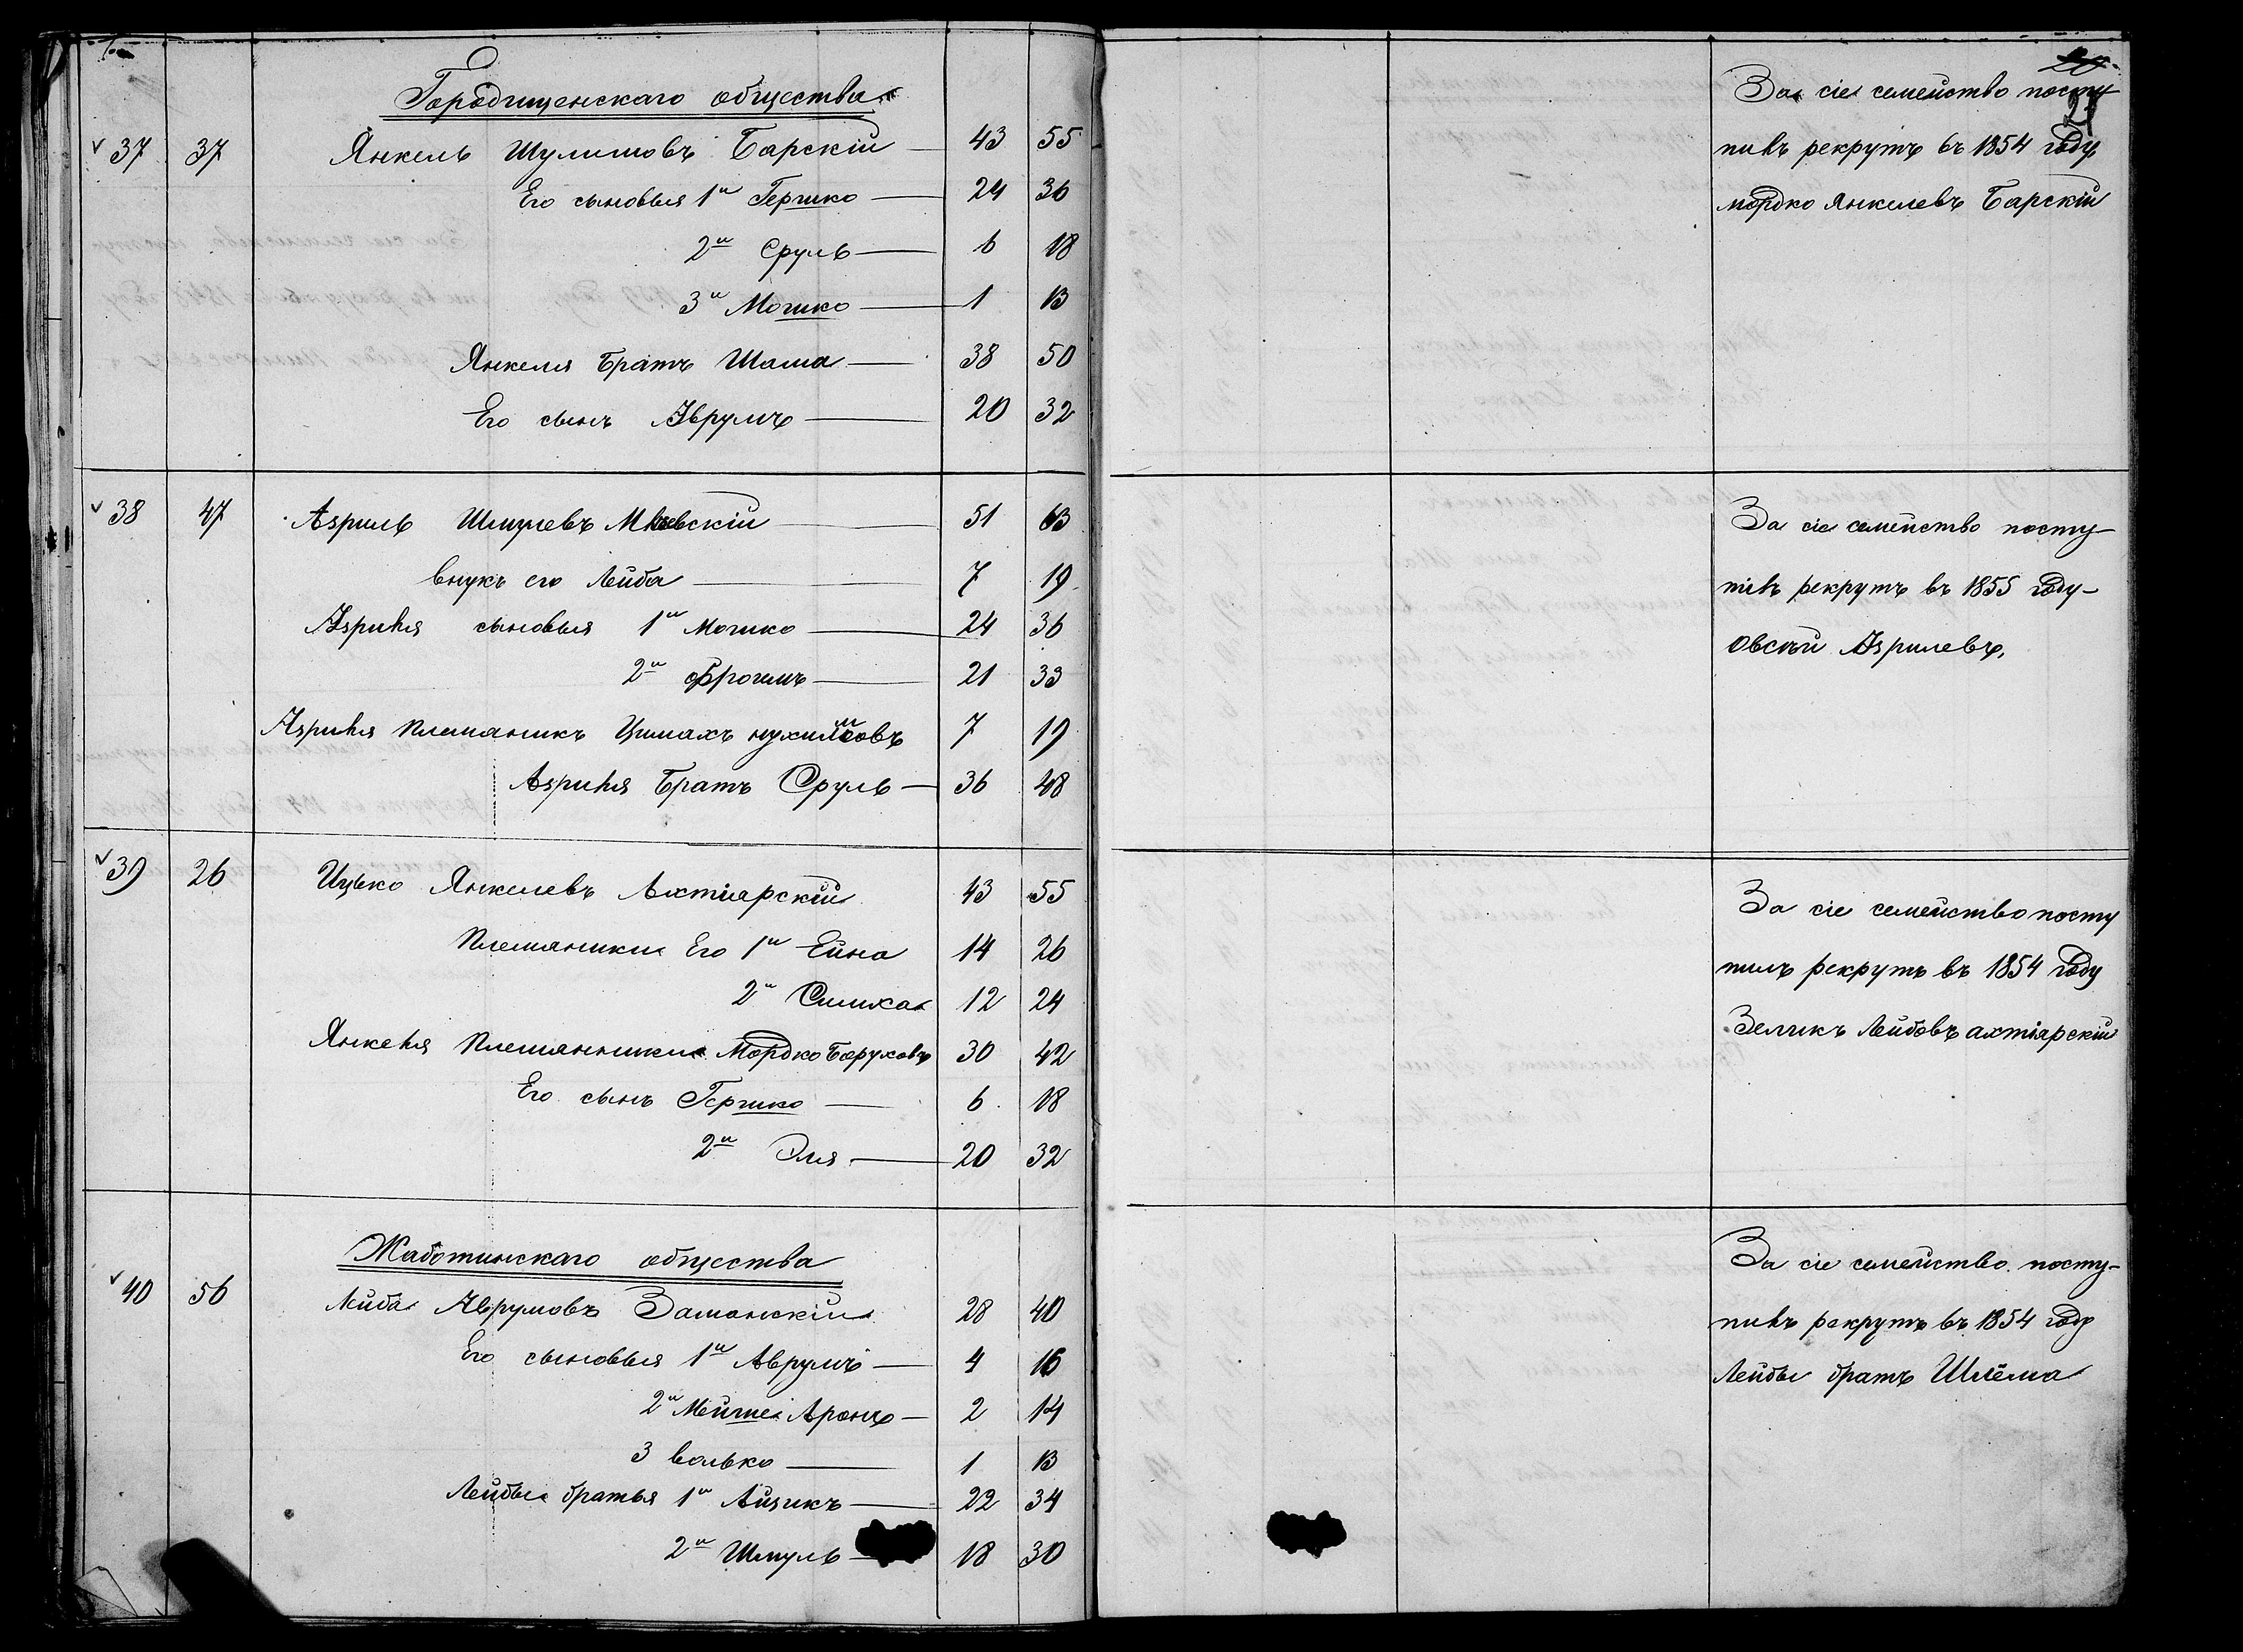 Городищенскаго общества
37 37 Янкель Шулимовъ Барскій 43 55
Его сыновья 1й Гершко 24 36
2й Сруль 6 18
3й Мошко 1 13
Янкеля братъ Шама 38 50
Его сынъ Аврумъ 20 32
38 47 Азриль Шмулевъ 51 63
внукъ его Лейба 7 19
Азриля сыновья 1й Мошко 24 36
2й Фроимъ 21 33
Азриля племяникъ Цимахъ нухимовъ 7 19
Азриля братъ Сруль 36 48
39 26 Ицько Янкелевъ Ахтіарскій 43 55
Племяники Его 1й Ейна 14 26
2й Симха 12 24
Янкеля племянники Мордко Боруховъ 30 42
Его сынъ Гершко 6 18
2й Эля 20 32
Жаботинскаго общества
40 56 Лейба Аврумовъ Заманскій 28 40
Его сыновья 1й Аврумъ 4 16
2й Мейше Аронъ 2 14
3 волько 1 13
Лейбы братья 1й Айзикъ 22 34
2й Шмуль 18 30
20
21
За сіе семейство посту
пилъ рекрутъ въ 1854 году
мордко Янкелевъ Барскій
За сіе семейство посту-
пилъ рекрутъ въ 1855 году-
Овсѣй Азрилевъ,
За сіе семейство посту
пилъ рекрутъ въ 1854 году
Зеликъ Лейбовъ ахтіярскій
За сіе семейство посту-
пилъ рекрутъ въ 1854 году
Лейбы братъ Шлёма